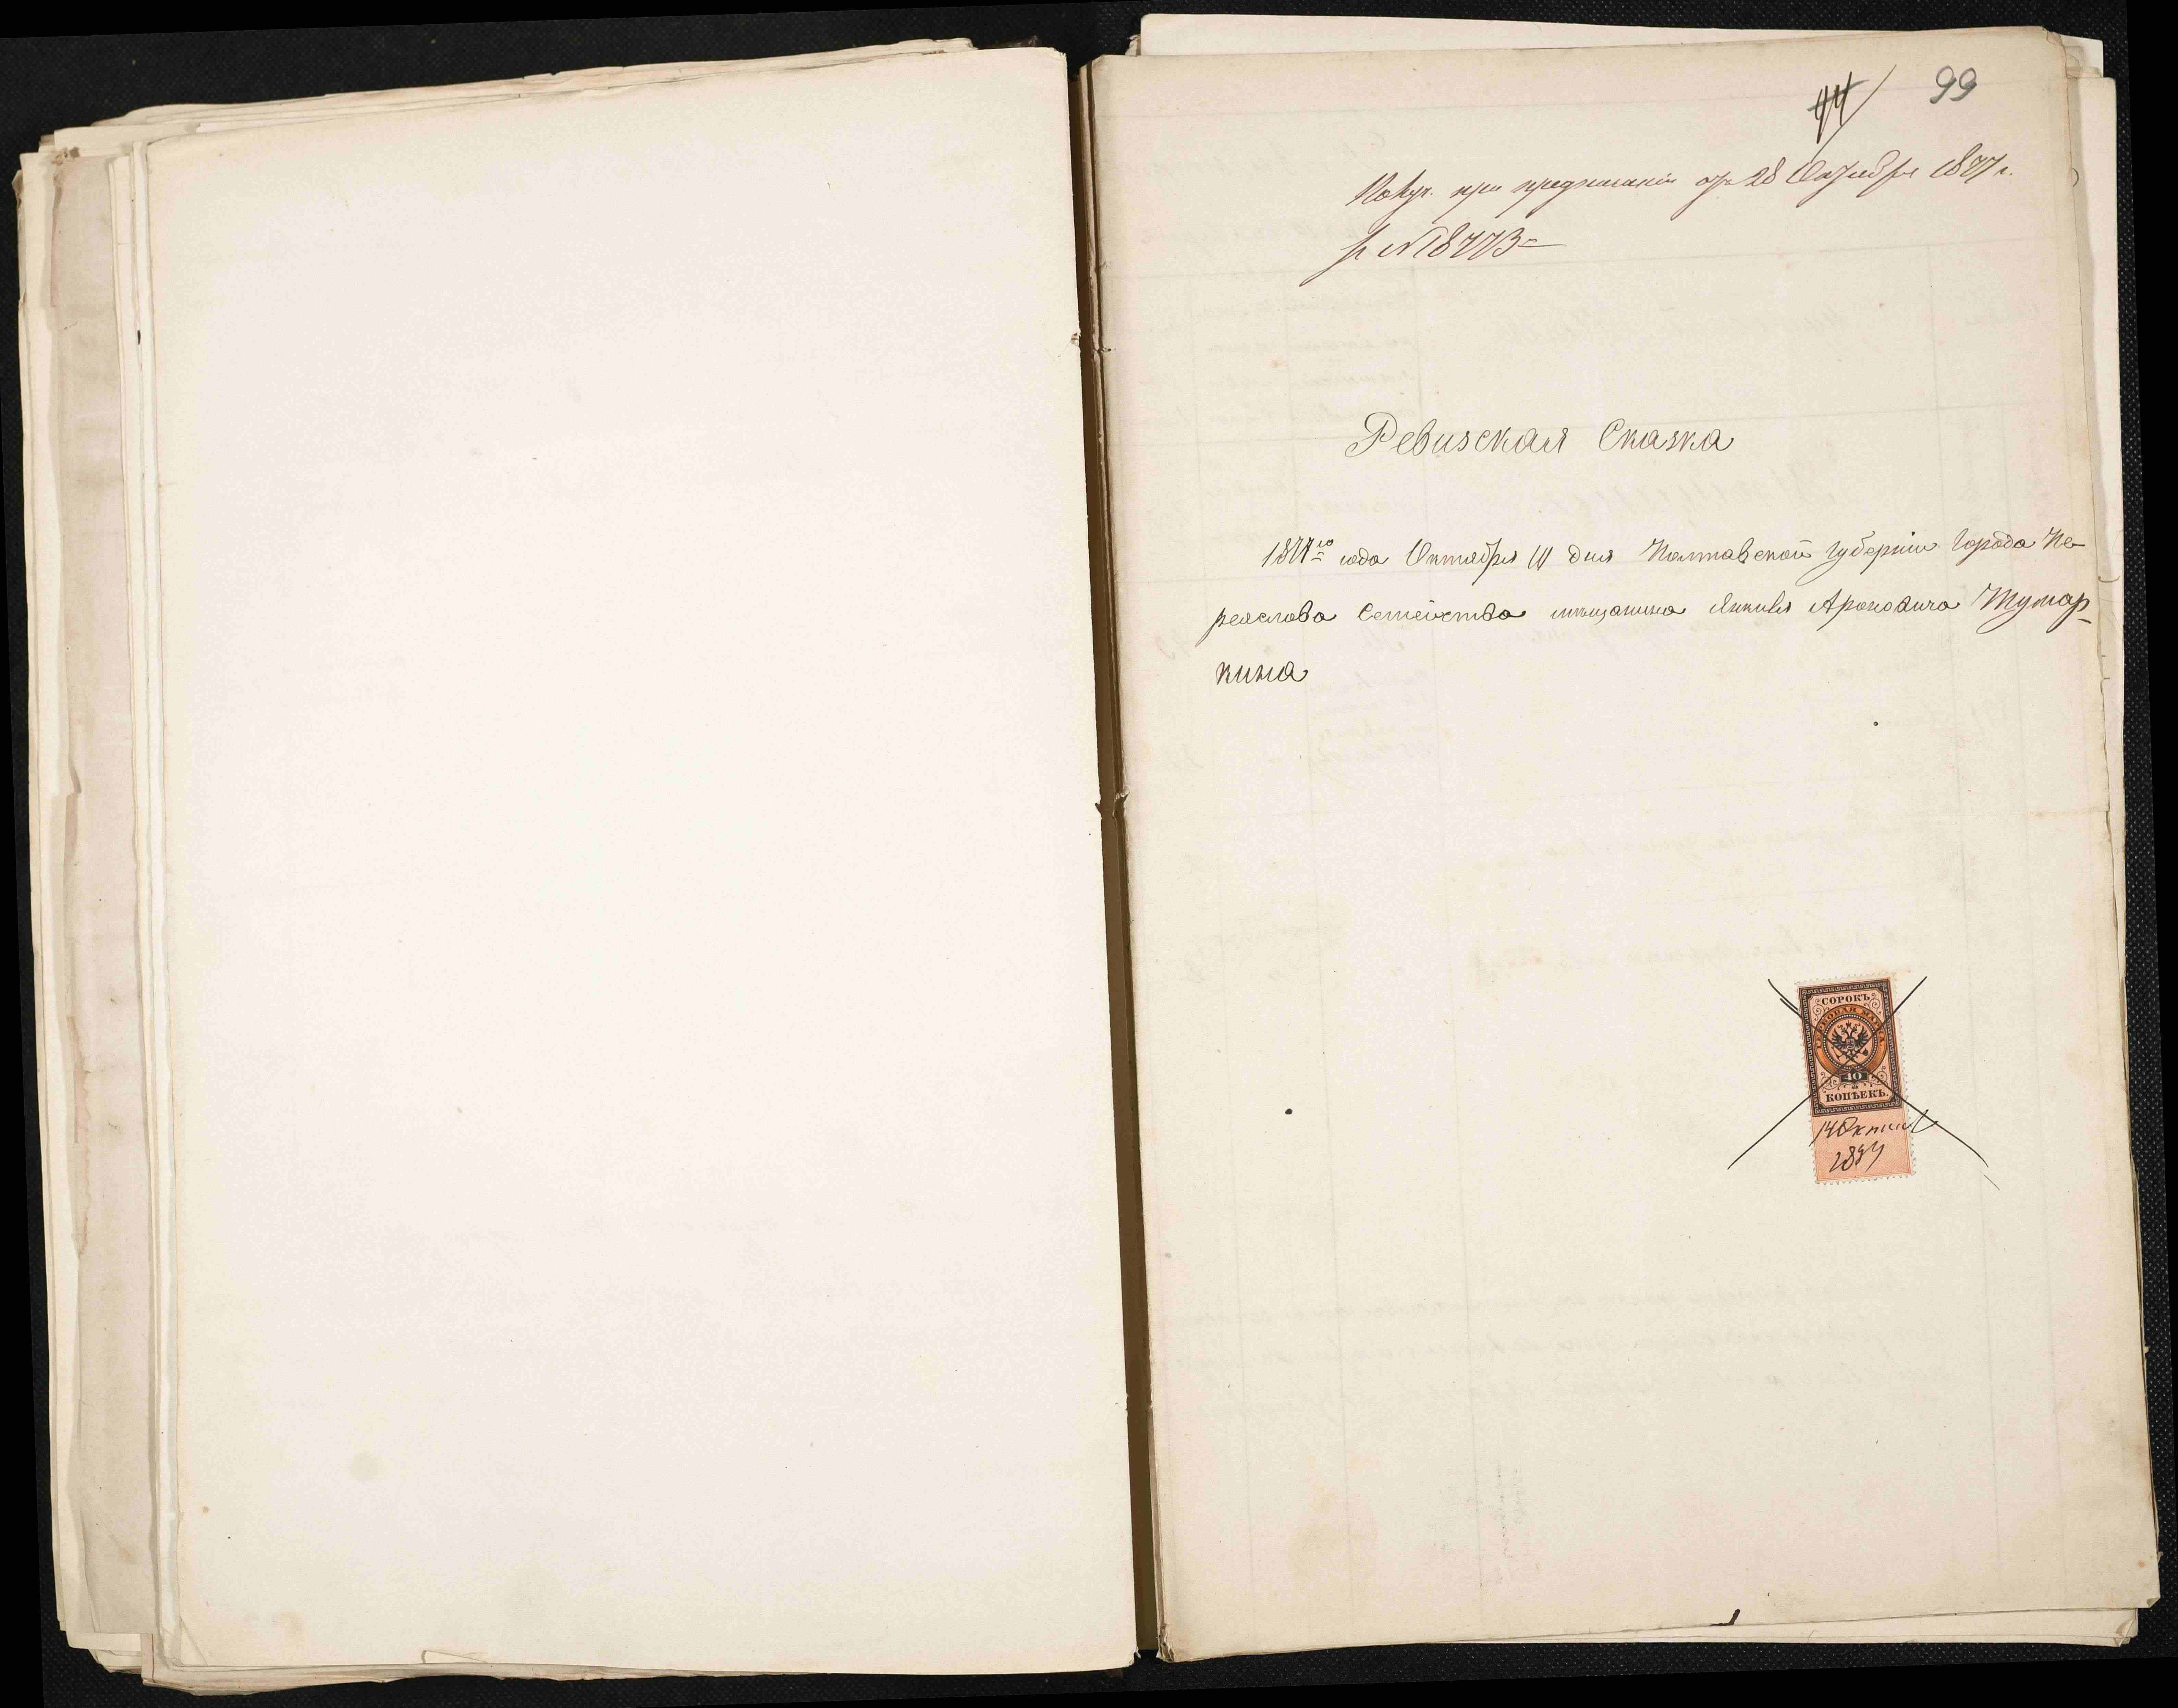 44 99
Получ. при предписаніи отъ 28 Октября 1877 г.
за № 18773
Ревизская Сказка
1877го года Октября 14 дня Полтавской Губерніи Города Пе-
реяслова Семейства мещанина Янкеля Ароновича Тумар-
кина
СОРОКЪ
ГЕРБОВАЯ МАРКА
40
КОПѢЕКЪ.
14 Октяб
1877